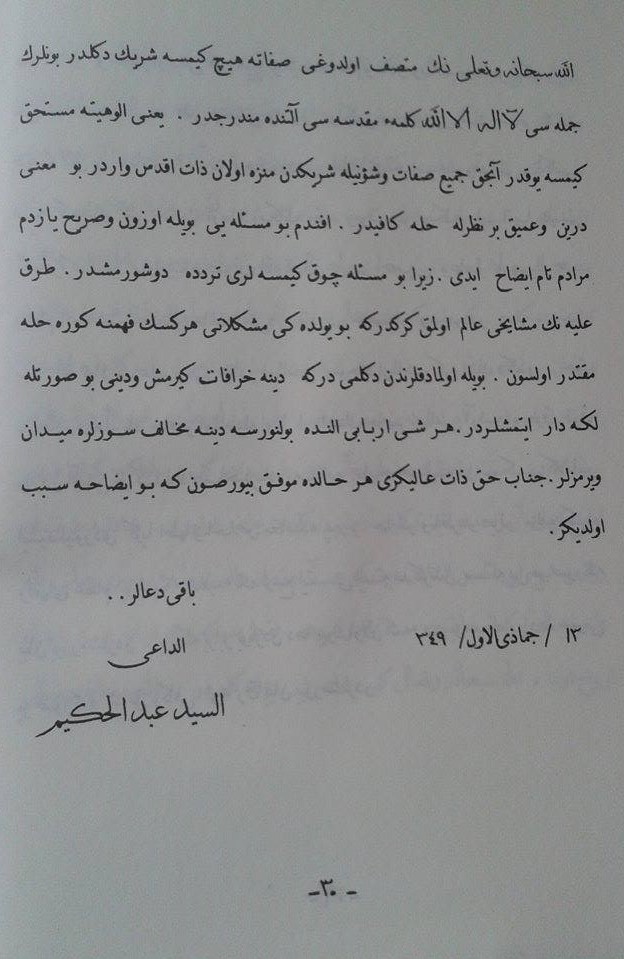 الله سبحانه وتعلى نك متصف اولدوغى صفاته هيچ كيمسه شريك دكلدر بونلرك
جمله سى لا اله الا الله كلمهء مقدسه سى آلتنده مندرجدر . يعنى الوهيته مستحق
كيمسه يوقدر آنجق جميع صفات وشؤنيله شريكدن منزه اولان ذات اقدس واردر بو معنى
درين وعميق بر نظرله حله كافيدر . افندم بو مسئله يى بويله اوزون وصريح يازدم
مرادم تام ايضاح ايدى . زيرا بو مسئله چوق كيمسه لرى تردده دوشورمشدر . طرق
عليه نك مشايخى عالم اولمق كركدركه بو يولده كى مشكلاتى هركسك فهمنه كوره حله
مقتدر اولسون . بويله اولمادقلرندن دكلمى دركه دينه خرافات كيرمش ودينى بو صورتله
لكه دار ايتمشلردر . هر شى اربابى النده بولنورسه دينه مخالف سوزلره ميدان
ويرمزلر . جناب حق ذات عاليكزى هر حالده موفق بيورصون كه بو ايضاحه سبب
اولديكز .
باقى دعالر . .
١٣ / جماذى الاول / ٣٤٩
الداعى
السيد عبد الحكيم
- ٣٠ -